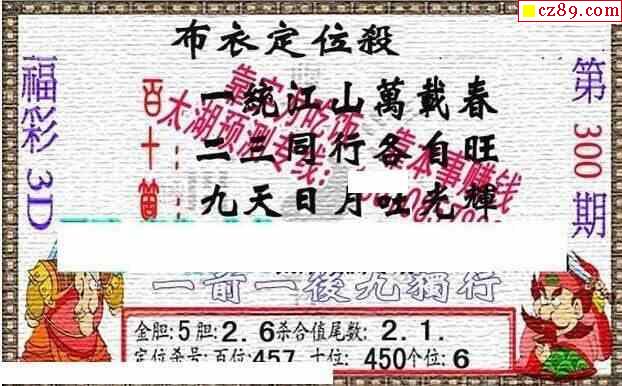 cz89.com
布衣定位殺
福彩3D
第300期
百
十
一統江山萬載春
二三同行各自旺
九天日月吐光輝
太湖预测专线:
靠本事赚钱
一前一後九獨行
金胆:5胆:2.6杀合值尾数:2.1.
定位杀号:百位:457 十位:450个位:6